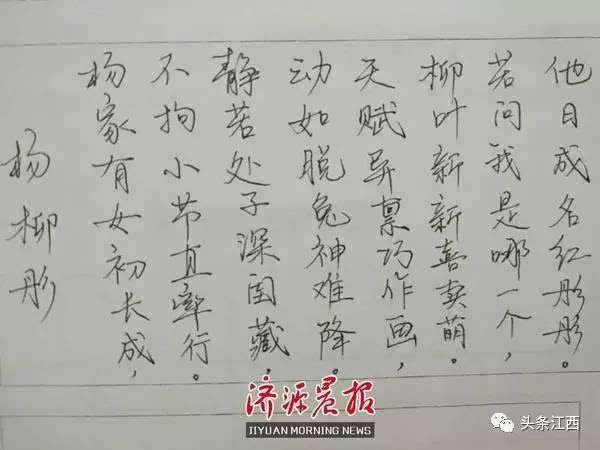 杨柳彤
杨家有女初长成，
不拘小节直率行。
静若处子深闺藏，
动如脱兔神难降。
天赋异禀巧作画，
柳叶新新喜卖萌。
若问我是哪一个，
他日成名红彤彤。
济源晨报
JIYUAN MORNING NEWS
头条江西